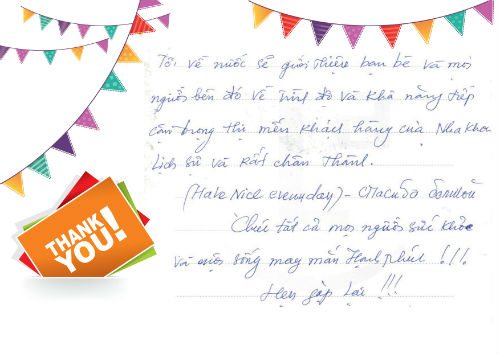 Tôi về nước sẽ giới thiệu bạn bè và mọi
người bên đó về trình độ và khả năng tiếp
cận trọng thị mến khách hàng của Nha khoa
Lịch sự và rất chân thành.
(Have Nice everyday) - спасибо большое
Chúc tất cả mọi người sức khỏe
và cuộc sống may mắn Hạnh phúc !!!.
Hẹn gặp lại !!!
THANK
YOU!